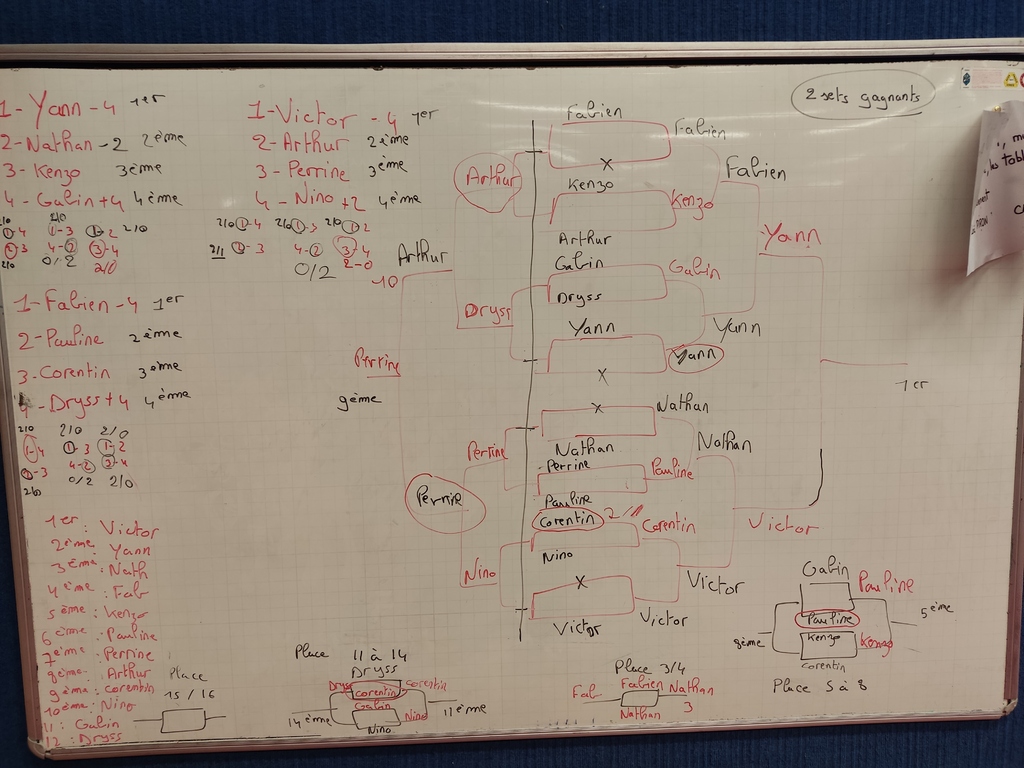 2 sets gagnants
1-Yann-4 1er
2-Nathan-2 2ème
3-Kenzo 3ème
4-Gabin+4 4ème
2/0 2/0
1-4 1-3 1-2 2/0
2-3 4-2 3-4
2/0 0/2 2/0
1-Victor-4 1er
2-Arthur 2ème
3-Perrine 3ème
4-Nino+2 4ème
2/0 1-4 2/0 1-3 2/0 1-2
2/1 2-3 4-2 3-4
0/2 2-0
1-Fabien-4 1er
2-Pauline 2ème
3-Corentin 3ème
4-Dryss+4 4ème
2/0 2/0 2/0
1-4 1-3 1-2
2-3 4-2 3-4
2/0 0/2 2/0
1er: Victor
2ème: Yann
3ème: Nath
4ème: Fab
5ème: Kenzo
6ème: Pauline
7ème: Perrine
8ème: Arthur
9ème: Corentin
10ème: Nino
11: Gabin
12: Dryss
Arthur
Dryss
Arthur
10
Perrine
9ème
Perrine
Perrine
Nino
Fabien
X
Fabien
Kenzo
Arthur
Kenzo
Fabien
Gabin
Dryss
Gabin
Yann
X
Yann
Yann
Yann
X
Nathan
Nathan
Perrine
Pauline
Pauline
Nathan
Corentin 2/
Nino
Corentin
X
Victor
Victor
Victor
Victor
1er
Place
15/16
Place 11 à 14
Dryss
Dryss Corentin Corentin
Gabin
Nino Nino
14ème 11ème
Place 3/4
Fab Fabien Nathan
Nathan 3
Gabin
Pauline Pauline
Kenzo Kenzo
Corentin
8ème 5ème
Place 5 à 8